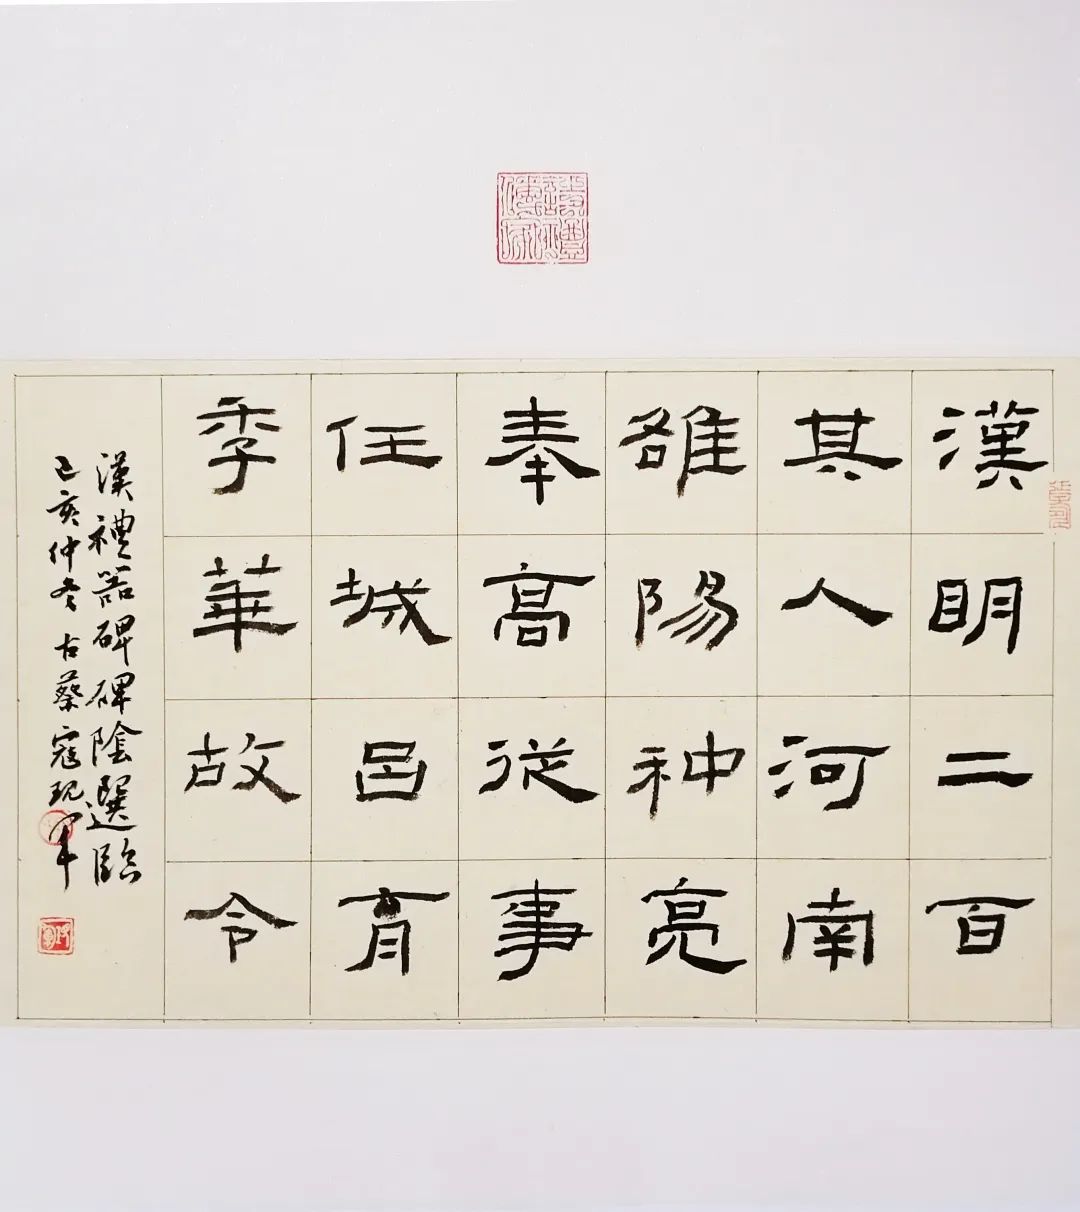 漢明二百
其人河南
雒陽种亮
奉高從事
任城呂育
季華故令
漢禮器碑碑陰選臨
己亥仲冬古蔡寇现军